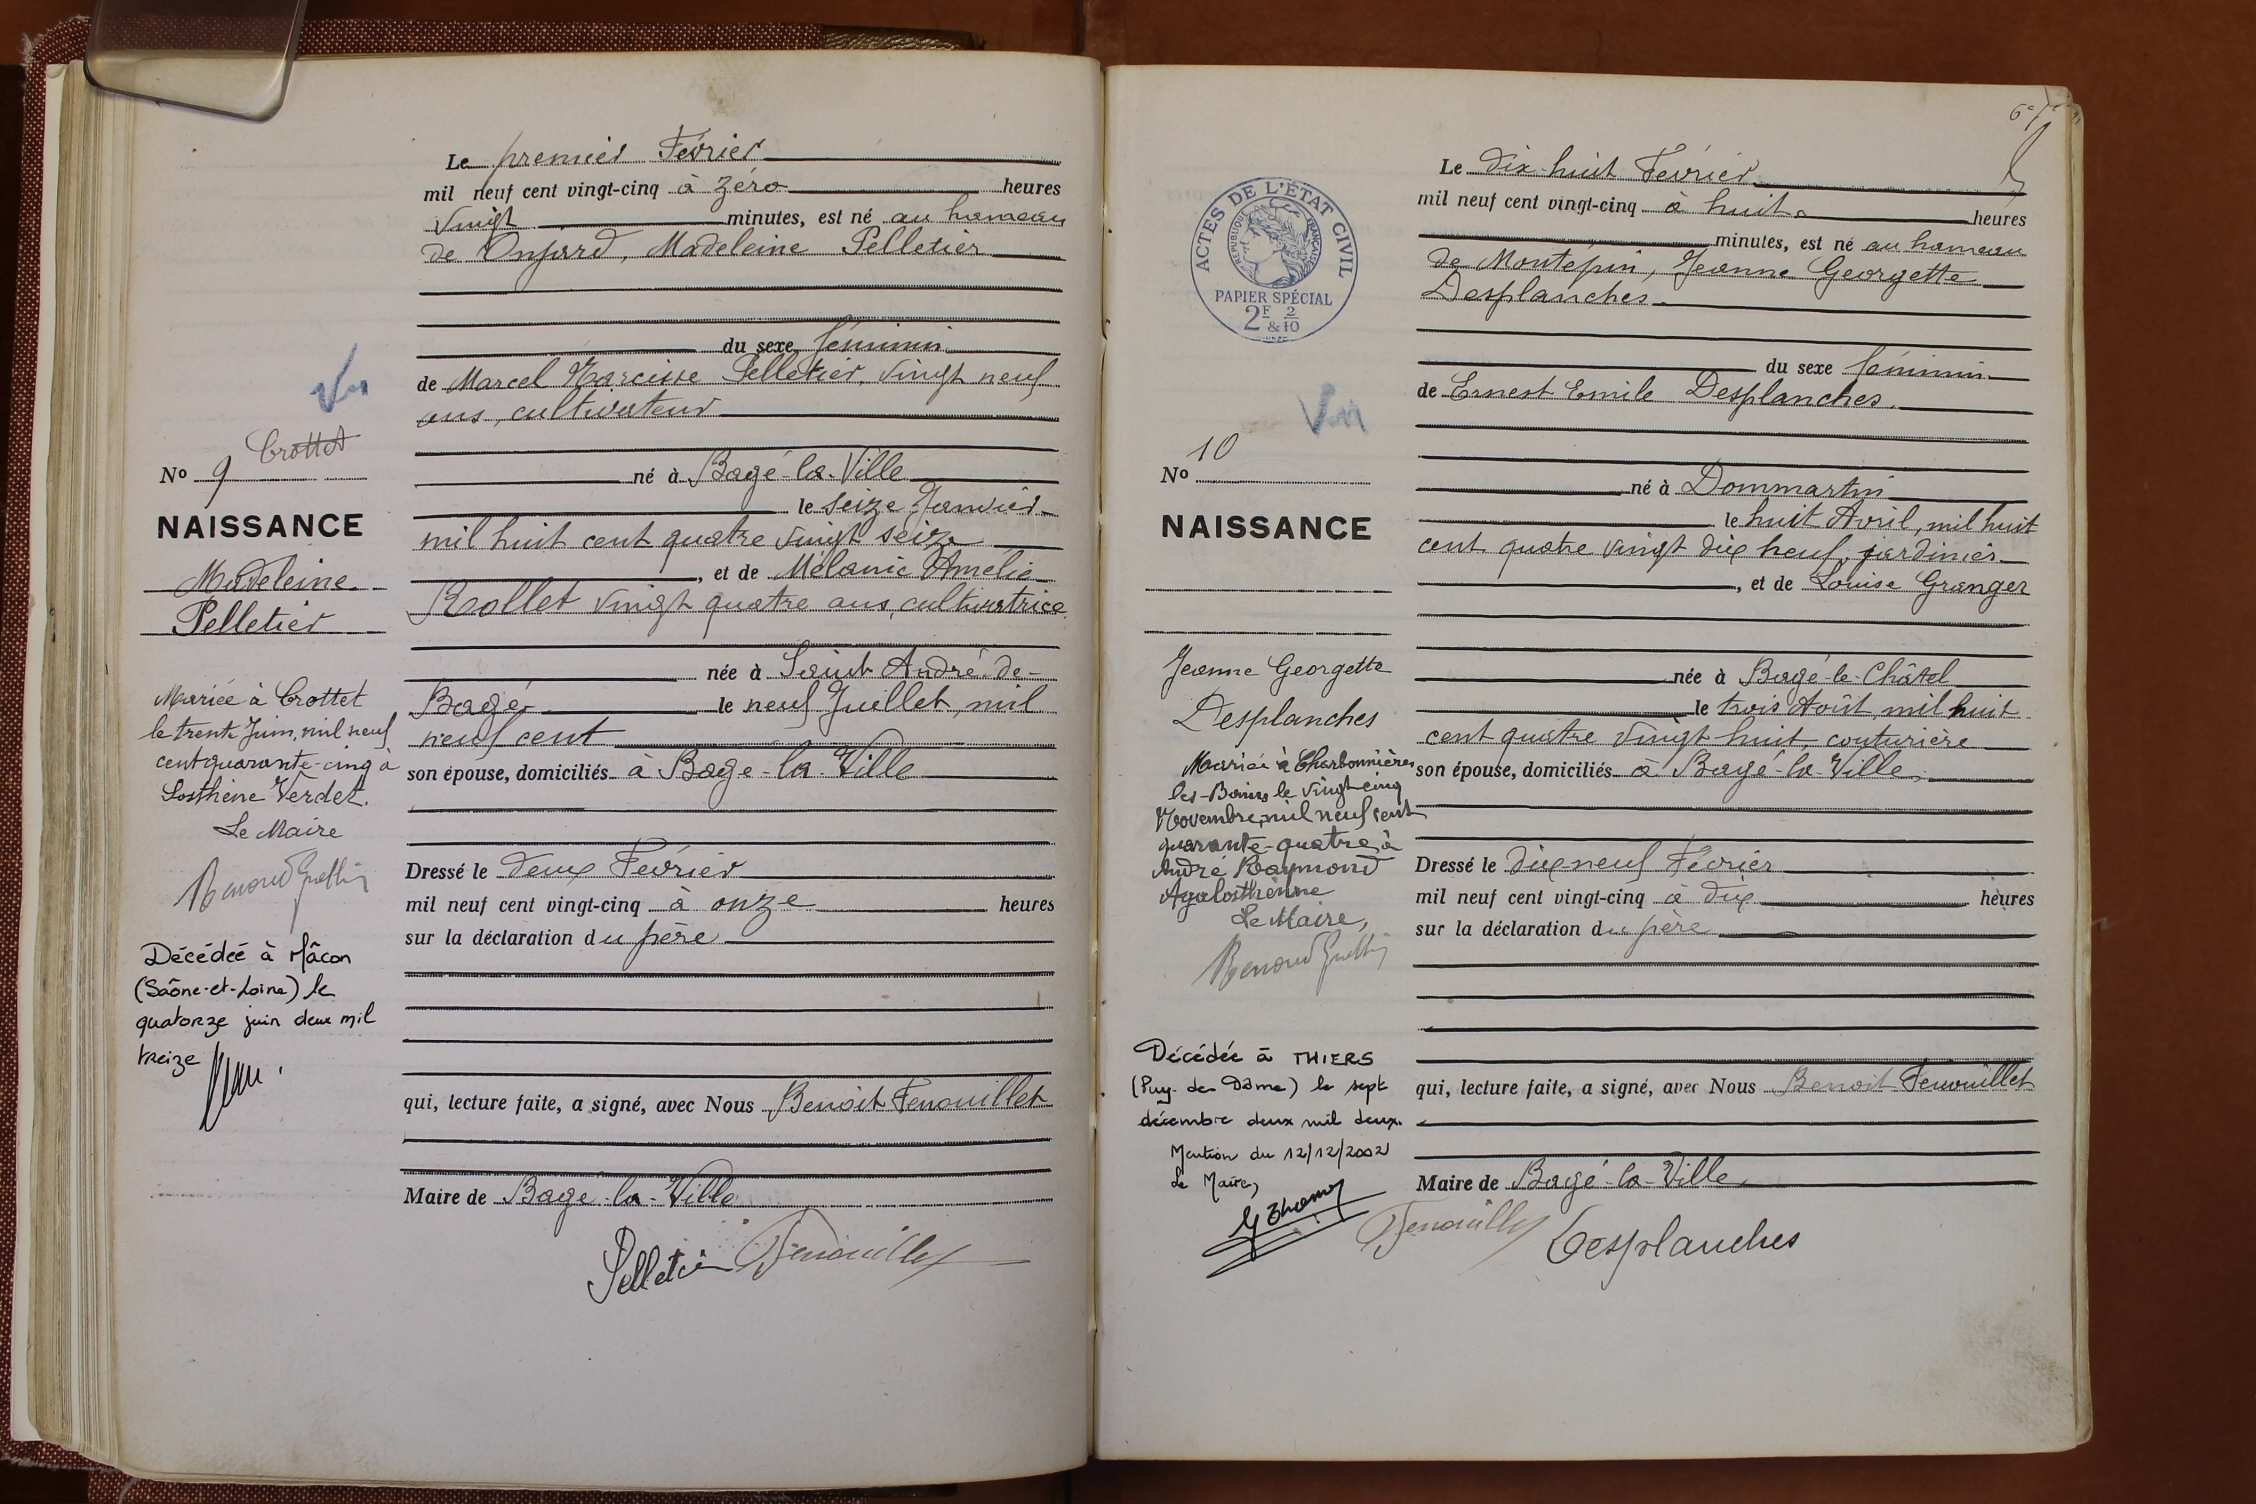 Le premier Février
mil neuf cent vingt-cinq à zéro heures
vingt minutes, est né au hameau
de Onjard, Madeleine Pelletier
du sexe féminin
de Marcel Narcisse Pelletier, vingt neuf
ans, cultivateur
né à Bagé-la-Ville
le seize Janvier
mil huit cent quatre vingt seize
, et de Mélanie Amélie
Rollet vingt quatre ans, cultivatrice
née à Saint André-de-
Bagé le neuf Juillet, mil
neuf cent
son épouse, domiciliés à Bagé-la-Ville
Dressé le deux Février
mil neuf cent vingt-cinq à onze heures
sur la déclaration du père
qui, lecture faite, a signé, avec Nous Benoit Fenouillet
Maire de Bagé-la-Ville
Pelletier Fenouillet
Vu
Crottet
No 9
NAISSANCE
Madeleine
Pelletier
Mariée à Crottet
le trente Juin, mil neuf
cent quarante-cinq à
Losthène Verdet.
Le Maire
Décédée à Mâcon
(Saône-et-Loire) le
quatorze juin deux mil
treize
Le dix-huit Février
mil neuf cent vingt-cinq à huit heures
minutes, est né au hameau
de Montépin, Jeanne Georgette
Desplanches
du sexe féminin
de Ernest Emile Desplanches
né à Dommartin
le huit Avril, mil huit
cent quatre vingt dix neuf, jardinier
, et de Louise Granger
née à Bagé-le-Châtel
le trois Août, mil huit
cent quatre vingt huit, couturière
son épouse, domiciliés à Bagé-la-Ville
Dressé le dix-neuf Février
mil neuf cent vingt-cinq à dix heures
sur la déclaration du père
qui, lecture faite, a signé, avec Nous Benoit Fenouillet
Maire de Bagé-la-Ville
Fenouillet Desplanches
ACTES DE L'ÉTAT CIVIL
RÉPUBLIQUE FRANÇAISE
PAPIER SPÉCIAL
2F & 2/10
Vu
No 10
NAISSANCE
Jeanne Georgette
Desplanches
Mariée à Charbonnières
les-Bains le vingt cinq
Novembre, mil neuf cent
quarante-quatre à
André Raymond
Agalosthènne
Le Maire,
Décédée à THIERS
(Puy-de-Dôme) le sept
décembre deux mil deux.
Mention du 12/12/2002
Le Maire,